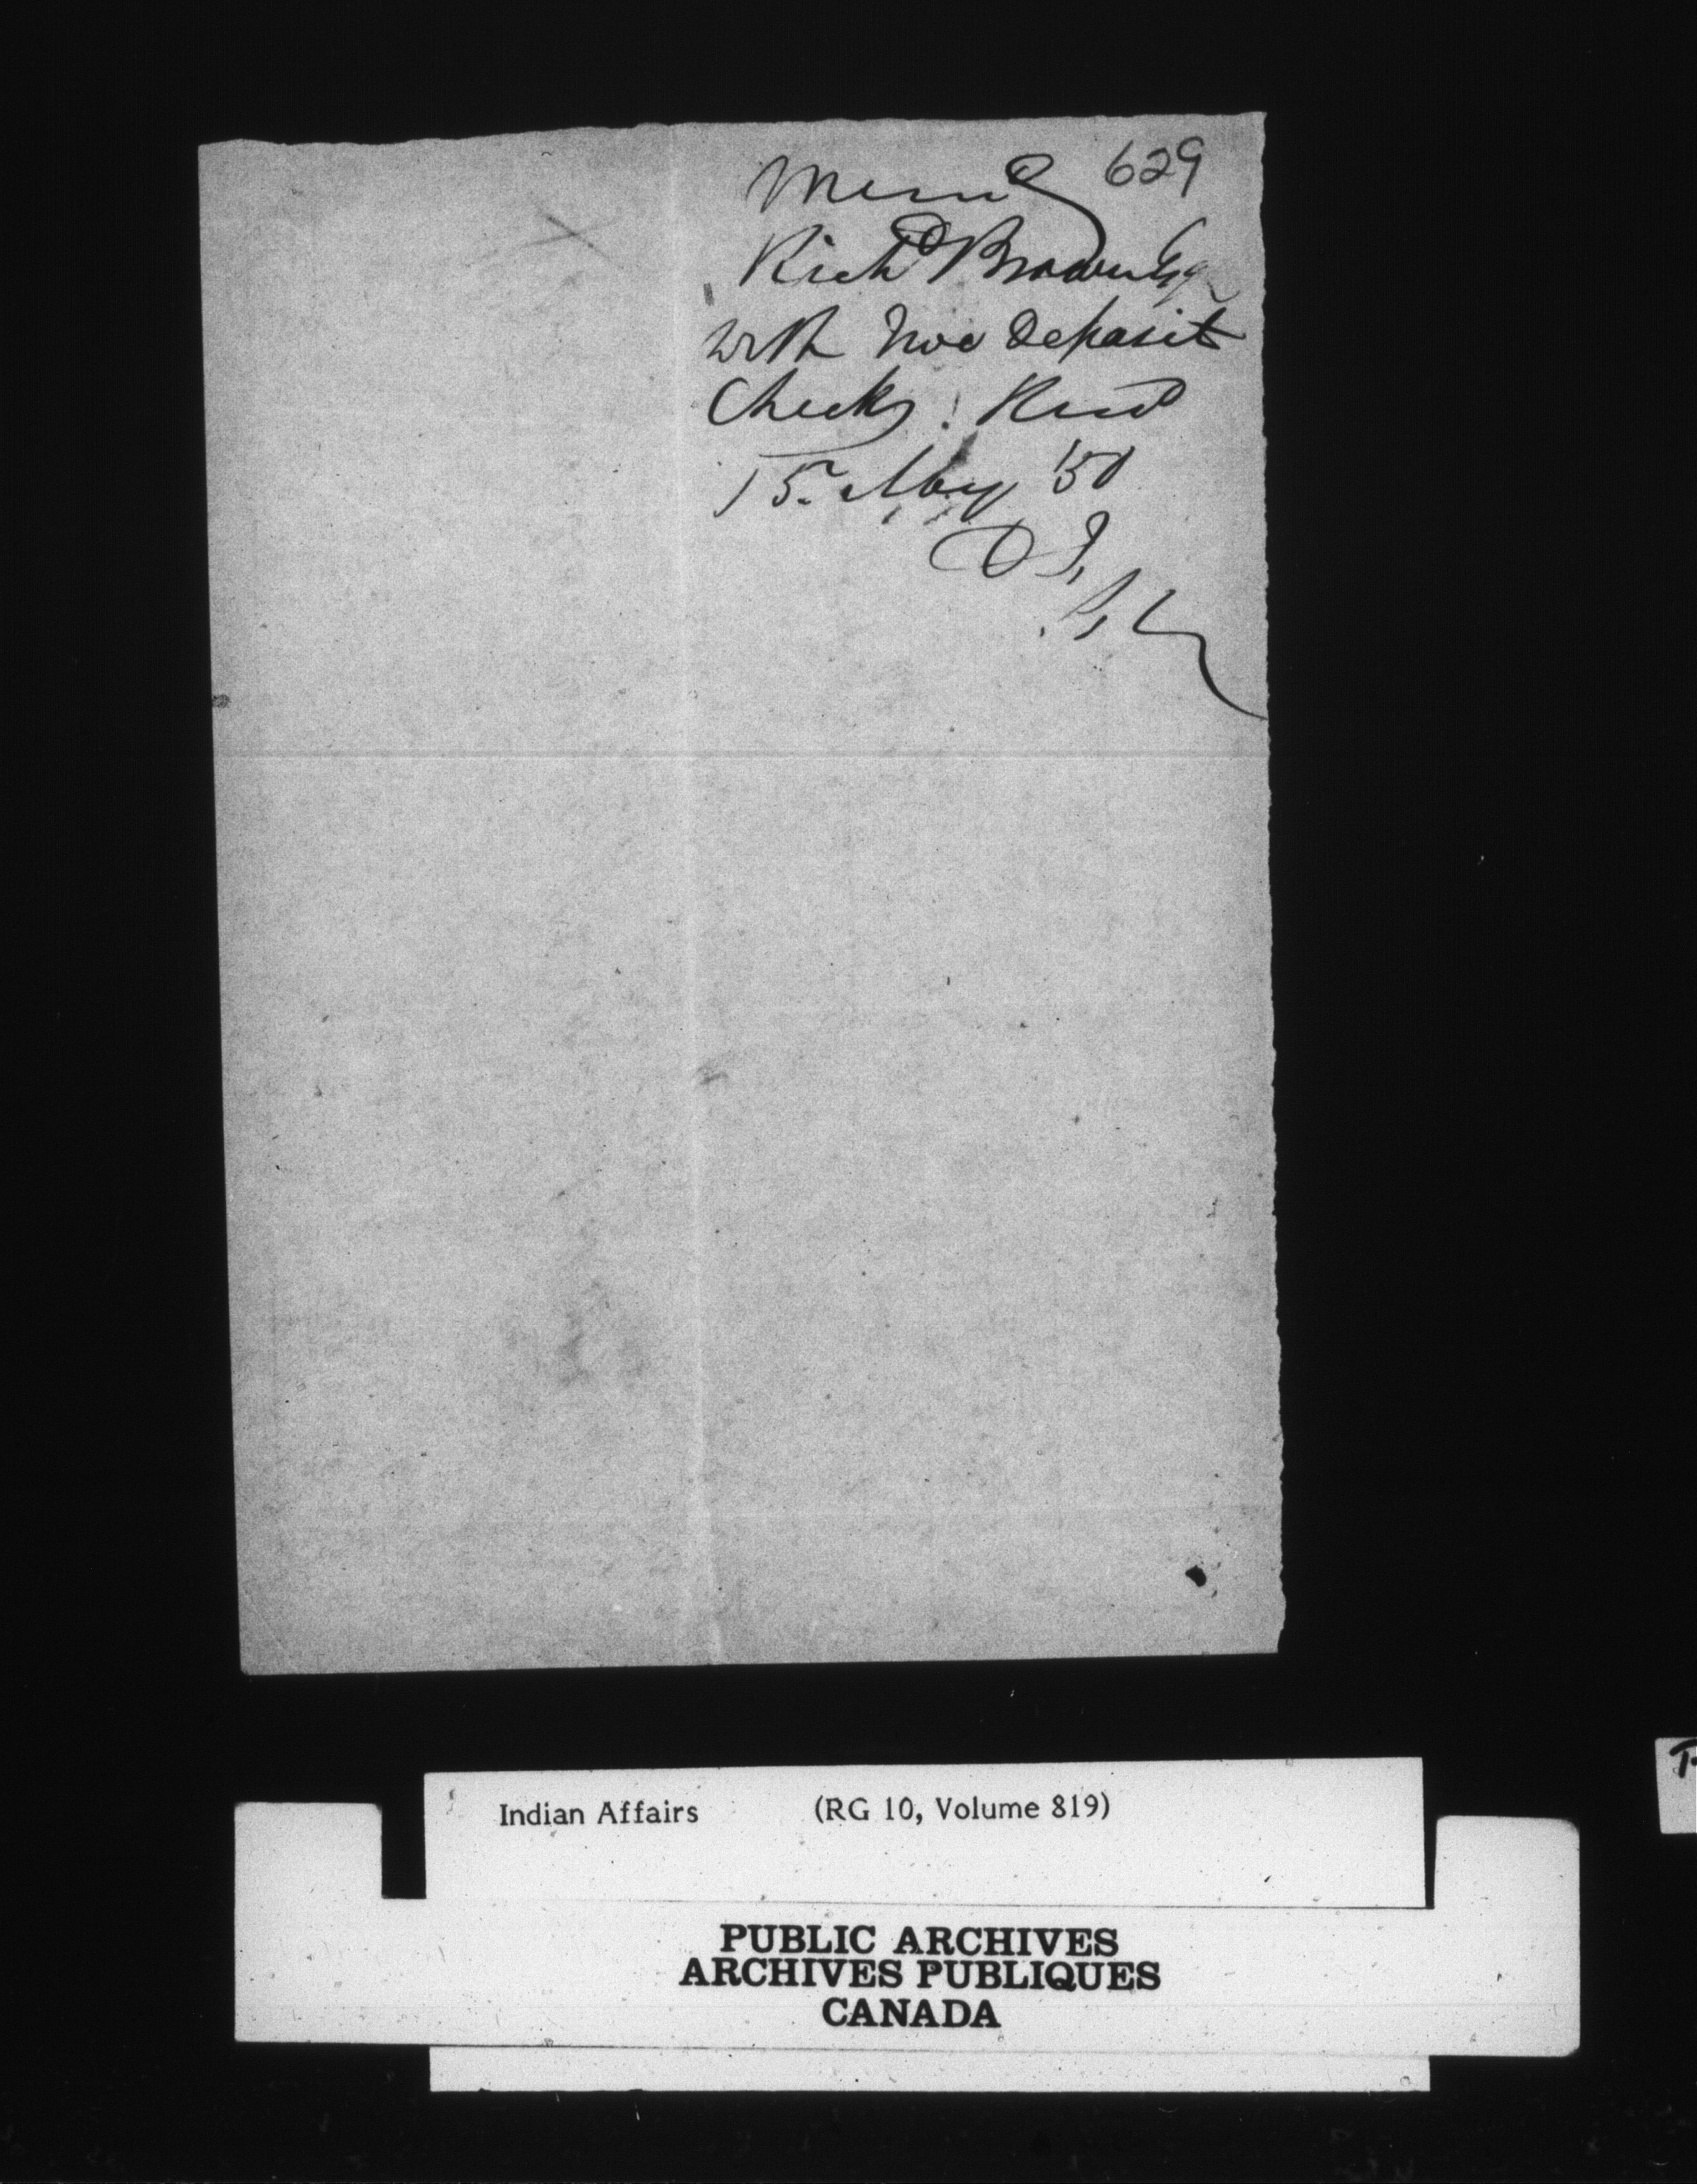 629
Memo
Richd Brown Esq
with two Deposit
Checks. Recd
15. May '50
Indian Affairs (RG 10, Volume 819)
PUBLIC ARCHIVES
ARCHIVES PUBLIQUES
CANADA